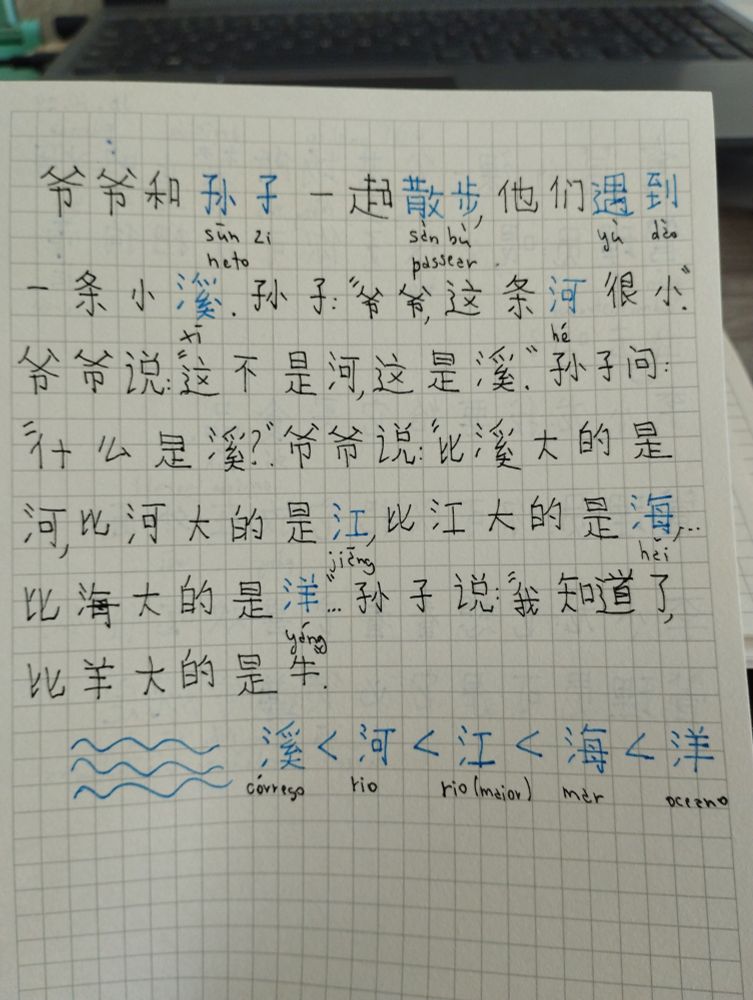 爷爷和孙子一起散步,他们遇到
sūn zi sàn bù yù dào
neto passear.
一条小溪.孙子:"爷爷,这条河很小".
xī hé
爷爷说:"这不是河,这是溪."孙子问:
"什么是溪?".爷爷说:"比溪大的是
河,比河大的是江,比江大的是海,...
jiāng hǎi
比海大的是洋"...孙子说:"我知道了,
yáng
比羊大的是牛".
溪 < 河 < 江 < 海 < 洋
córrego rio rio (maior) mar oceano